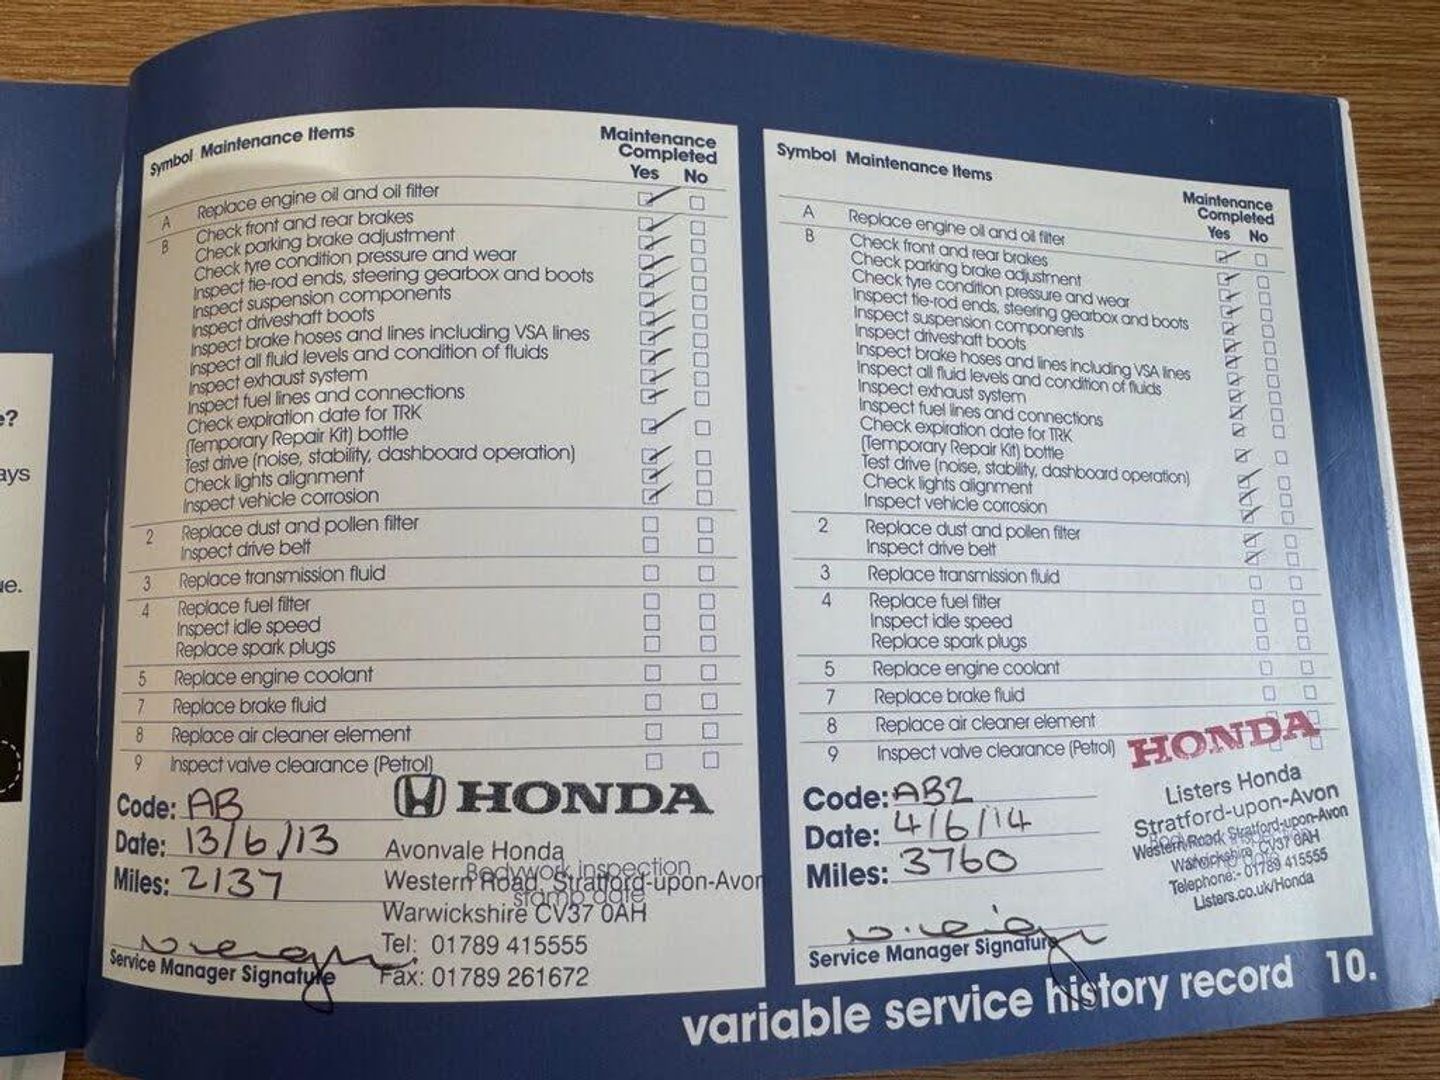 e?
ays
ue.
Symbol Maintenance Items
Maintenance
Completed
Yes No
A Replace engine oil and oil filter
B Check front and rear brakes
Check parking brake adjustment
Check tyre condition pressure and wear
Inspect tie-rod ends, steering gearbox and boots
Inspect suspension components
Inspect driveshaft boots
Inspect brake hoses and lines including VSA lines
Inspect all fluid levels and condition of fluids
Inspect exhaust system
Inspect fuel lines and connections
Check expiration date for TRK
(Temporary Repair Kit) bottle
Test drive (noise, stability, dashboard operation)
Check lights alignment
Inspect vehicle corrosion
2 Replace dust and pollen filter
Inspect drive belt
3 Replace transmission fluid
4 Replace fuel filter
Inspect idle speed
Replace spark plugs
5 Replace engine coolant
7 Replace brake fluid
8 Replace air cleaner element
9 Inspect valve clearance (Petrol)
Code: AB
Date: 13/6/13
Miles: 2137
Service Manager Signature
HONDA
Avonvale Honda
Bodywork inspection
Western Road, Stratford-upon-Avon
stamp date
Warwickshire CV37 0AH
Tel: 01789 415555
Fax: 01789 261672
Symbol Maintenance Items
Maintenance
Completed
Yes No
A Replace engine oil and oil filter
B Check front and rear brakes
Check parking brake adjustment
Check tyre condition pressure and wear
Inspect tie-rod ends, steering gearbox and boots
Inspect suspension components
Inspect driveshaft boots
Inspect brake hoses and lines including VSA lines
Inspect all fluid levels and condition of fluids
Inspect exhaust system
Inspect fuel lines and connections
Check expiration date for TRK
(Temporary Repair Kit) bottle
Test drive (noise, stability, dashboard operation)
Check lights alignment
Inspect vehicle corrosion
2 Replace dust and pollen filter
Inspect drive belt
3 Replace transmission fluid
4 Replace fuel filter
Inspect idle speed
Replace spark plugs
5 Replace engine coolant
7 Replace brake fluid
8 Replace air cleaner element
9 Inspect valve clearance (Petrol)
Code: AB2
Date: 4/6/14
Miles: 3760
Service Manager Signature
HONDA
Listers Honda
Stratford-upon-Avon
Western Road, Stratford-upon-Avon
Warwickshire CV37 0AH
Telephone:- 01789 415555
Listers.co.uk/Honda
variable service history record 10.